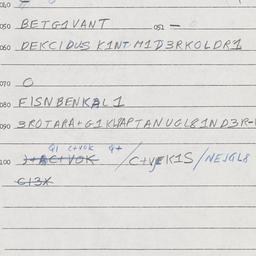 050 BETG1VANT 051 —
060 DEKCIDUS K1NT M1D3RKOLDR1
070 O
080 FISNBENKAL1
090 3ROTARA+G1KWAPTANUGL81ND3R-
Q1 C+VOK Q+
100 )+AC+VOK /C+VEK1S/NEJGL8
G13X